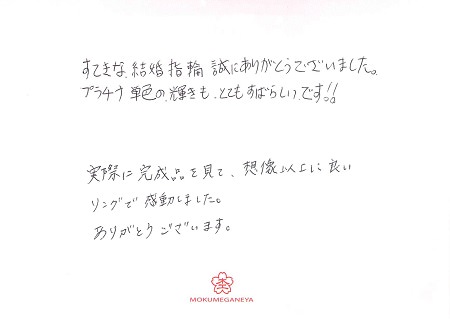 すてきな結婚指輪誠にありがとうございました。
プラチナ単色の輝きも、とてもすばらしいです!!
実際に完成品を見て、想像以上に良い
リングで感動しました。
ありがとうございます。
MOKUMEGANEYA